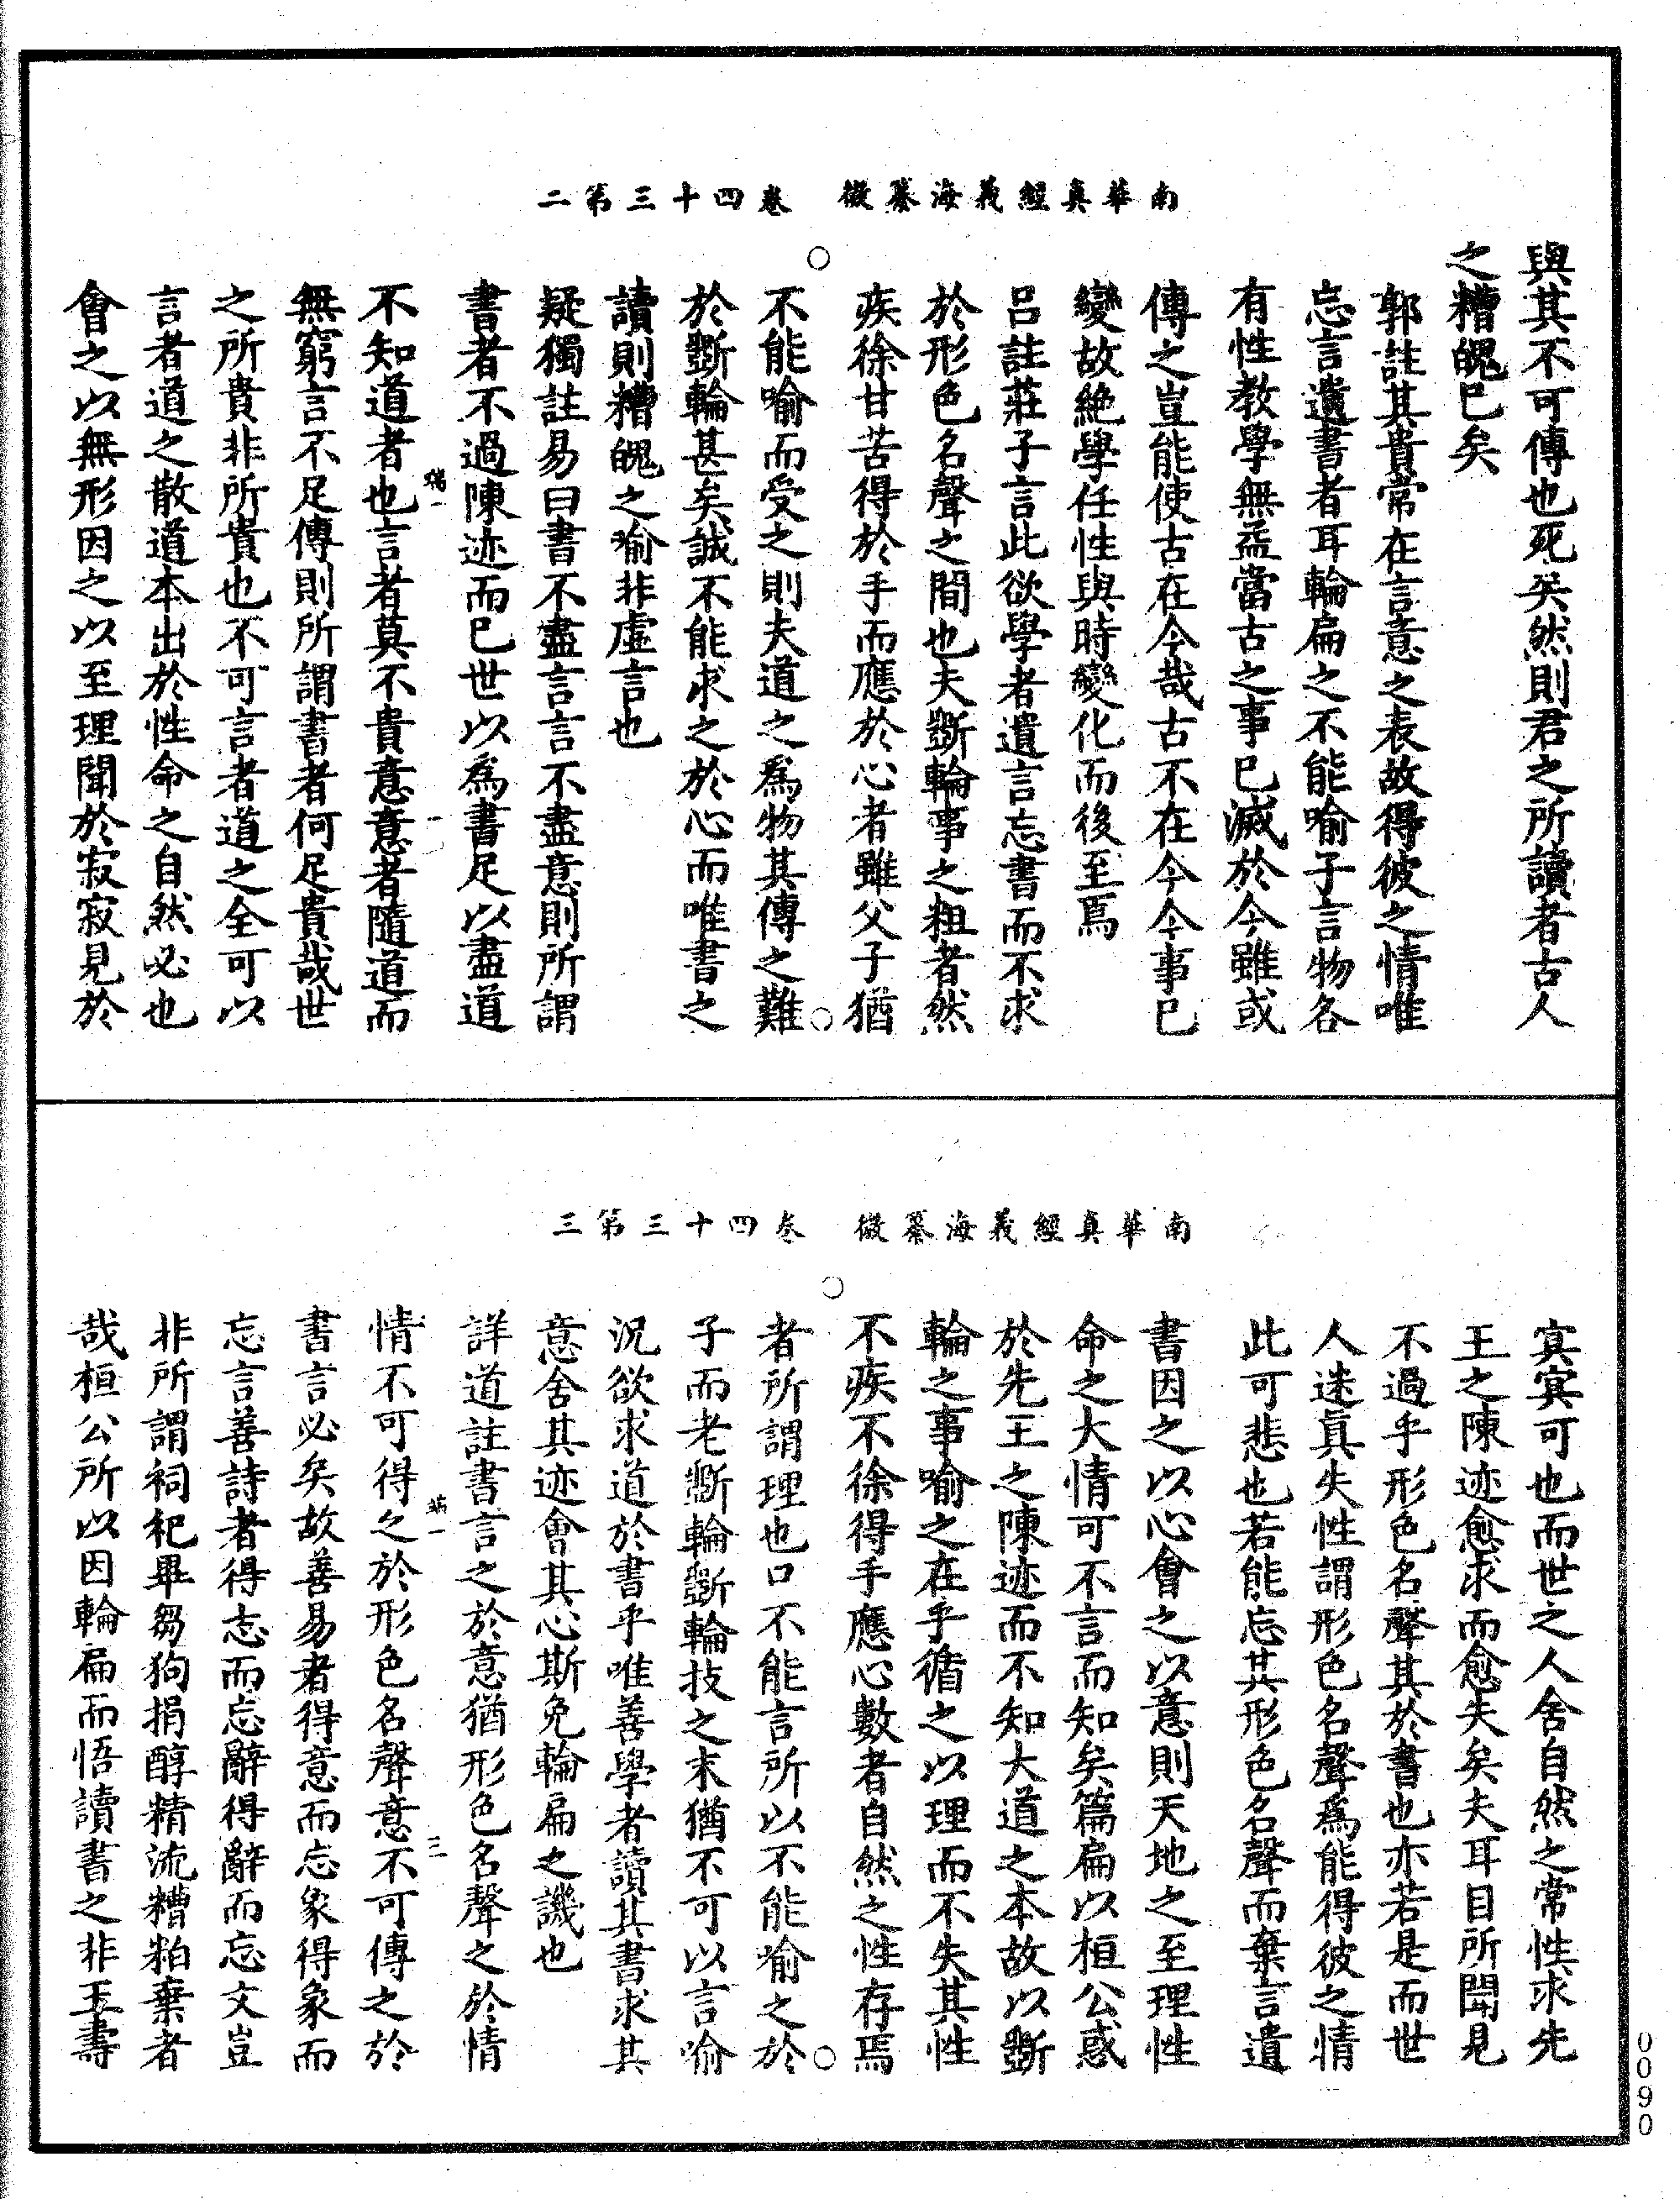 南華真經義海纂微 卷四十三第二
與其不可傳也死矣然則君之所讀者古人
之糟魄已矣
郭註其貴常在言意之表故得彼之情唯
忘言遺書者耳輪扁之不能喻子言物各
有性教學無益當古之事已滅於今雖或
傳之豈能使古在今哉古不在今今事已
變故絶學任性與時變化而後至焉
吕註莊子言此欲學者遺言忘書而不求
於形色名聲之間也夫斲輪事之粗者然
疾徐甘苦得於手而應於心者雖父子猶
不能喻而受之則夫道之爲物其傳之難
於斲輪甚矣誠不能求之於心而唯書之
讀則糟魄之喻非虛言也
疑獨註易曰書不盡言言不盡意則所謂
書者不過陳迹而已世以爲書足以盡道
不知道者也言者莫不貴意意者隨道而
無窮言不足傳則所謂書者何足貴哉世
之所貴非所貴也不可言者道之全可以
言者道之散道本出於性命之自然必也
會之以無形因之以至理聞於寂寂見於
南華真經義海纂微 卷四十三第三
冥冥可也而世之人舍自然之常性求先
王之陳迹愈求而愈失矣夫耳目所聞見
不過乎形色名聲其於書也亦若是而世
人迷真失性謂形色名聲爲能得彼之情
此可悲也若能忘其形色名聲而棄言遺
書因之以心會之以意則天地之至理性
命之大情可不言而知矣篇扁以桓公惑
於先王之陳迹而不知大道之本故以斲
輪之事喻之在乎循之以理而不失其性
不疾不徐得手應心數者自然之性存焉
者所謂理也口不能言所以不能喻之於
子而老斲輪斲輪技之末猶不可以言喻
況欲求道於書乎唯善學者讀其書求其
意舍其迹會其心斯免輪扁之譏也
詳道註書言之於意猶形色名聲之於情
情不可得之於形色名聲意不可傳之於
書言必矣故善易者得意而忘象得象而
忘言善詩者得志而忘辭得辭而忘文豈
非所謂祠祀畢芻狗捐醇精流糟粕棄者
哉桓公所以因輪扁而悟讀書之非王壽
0090